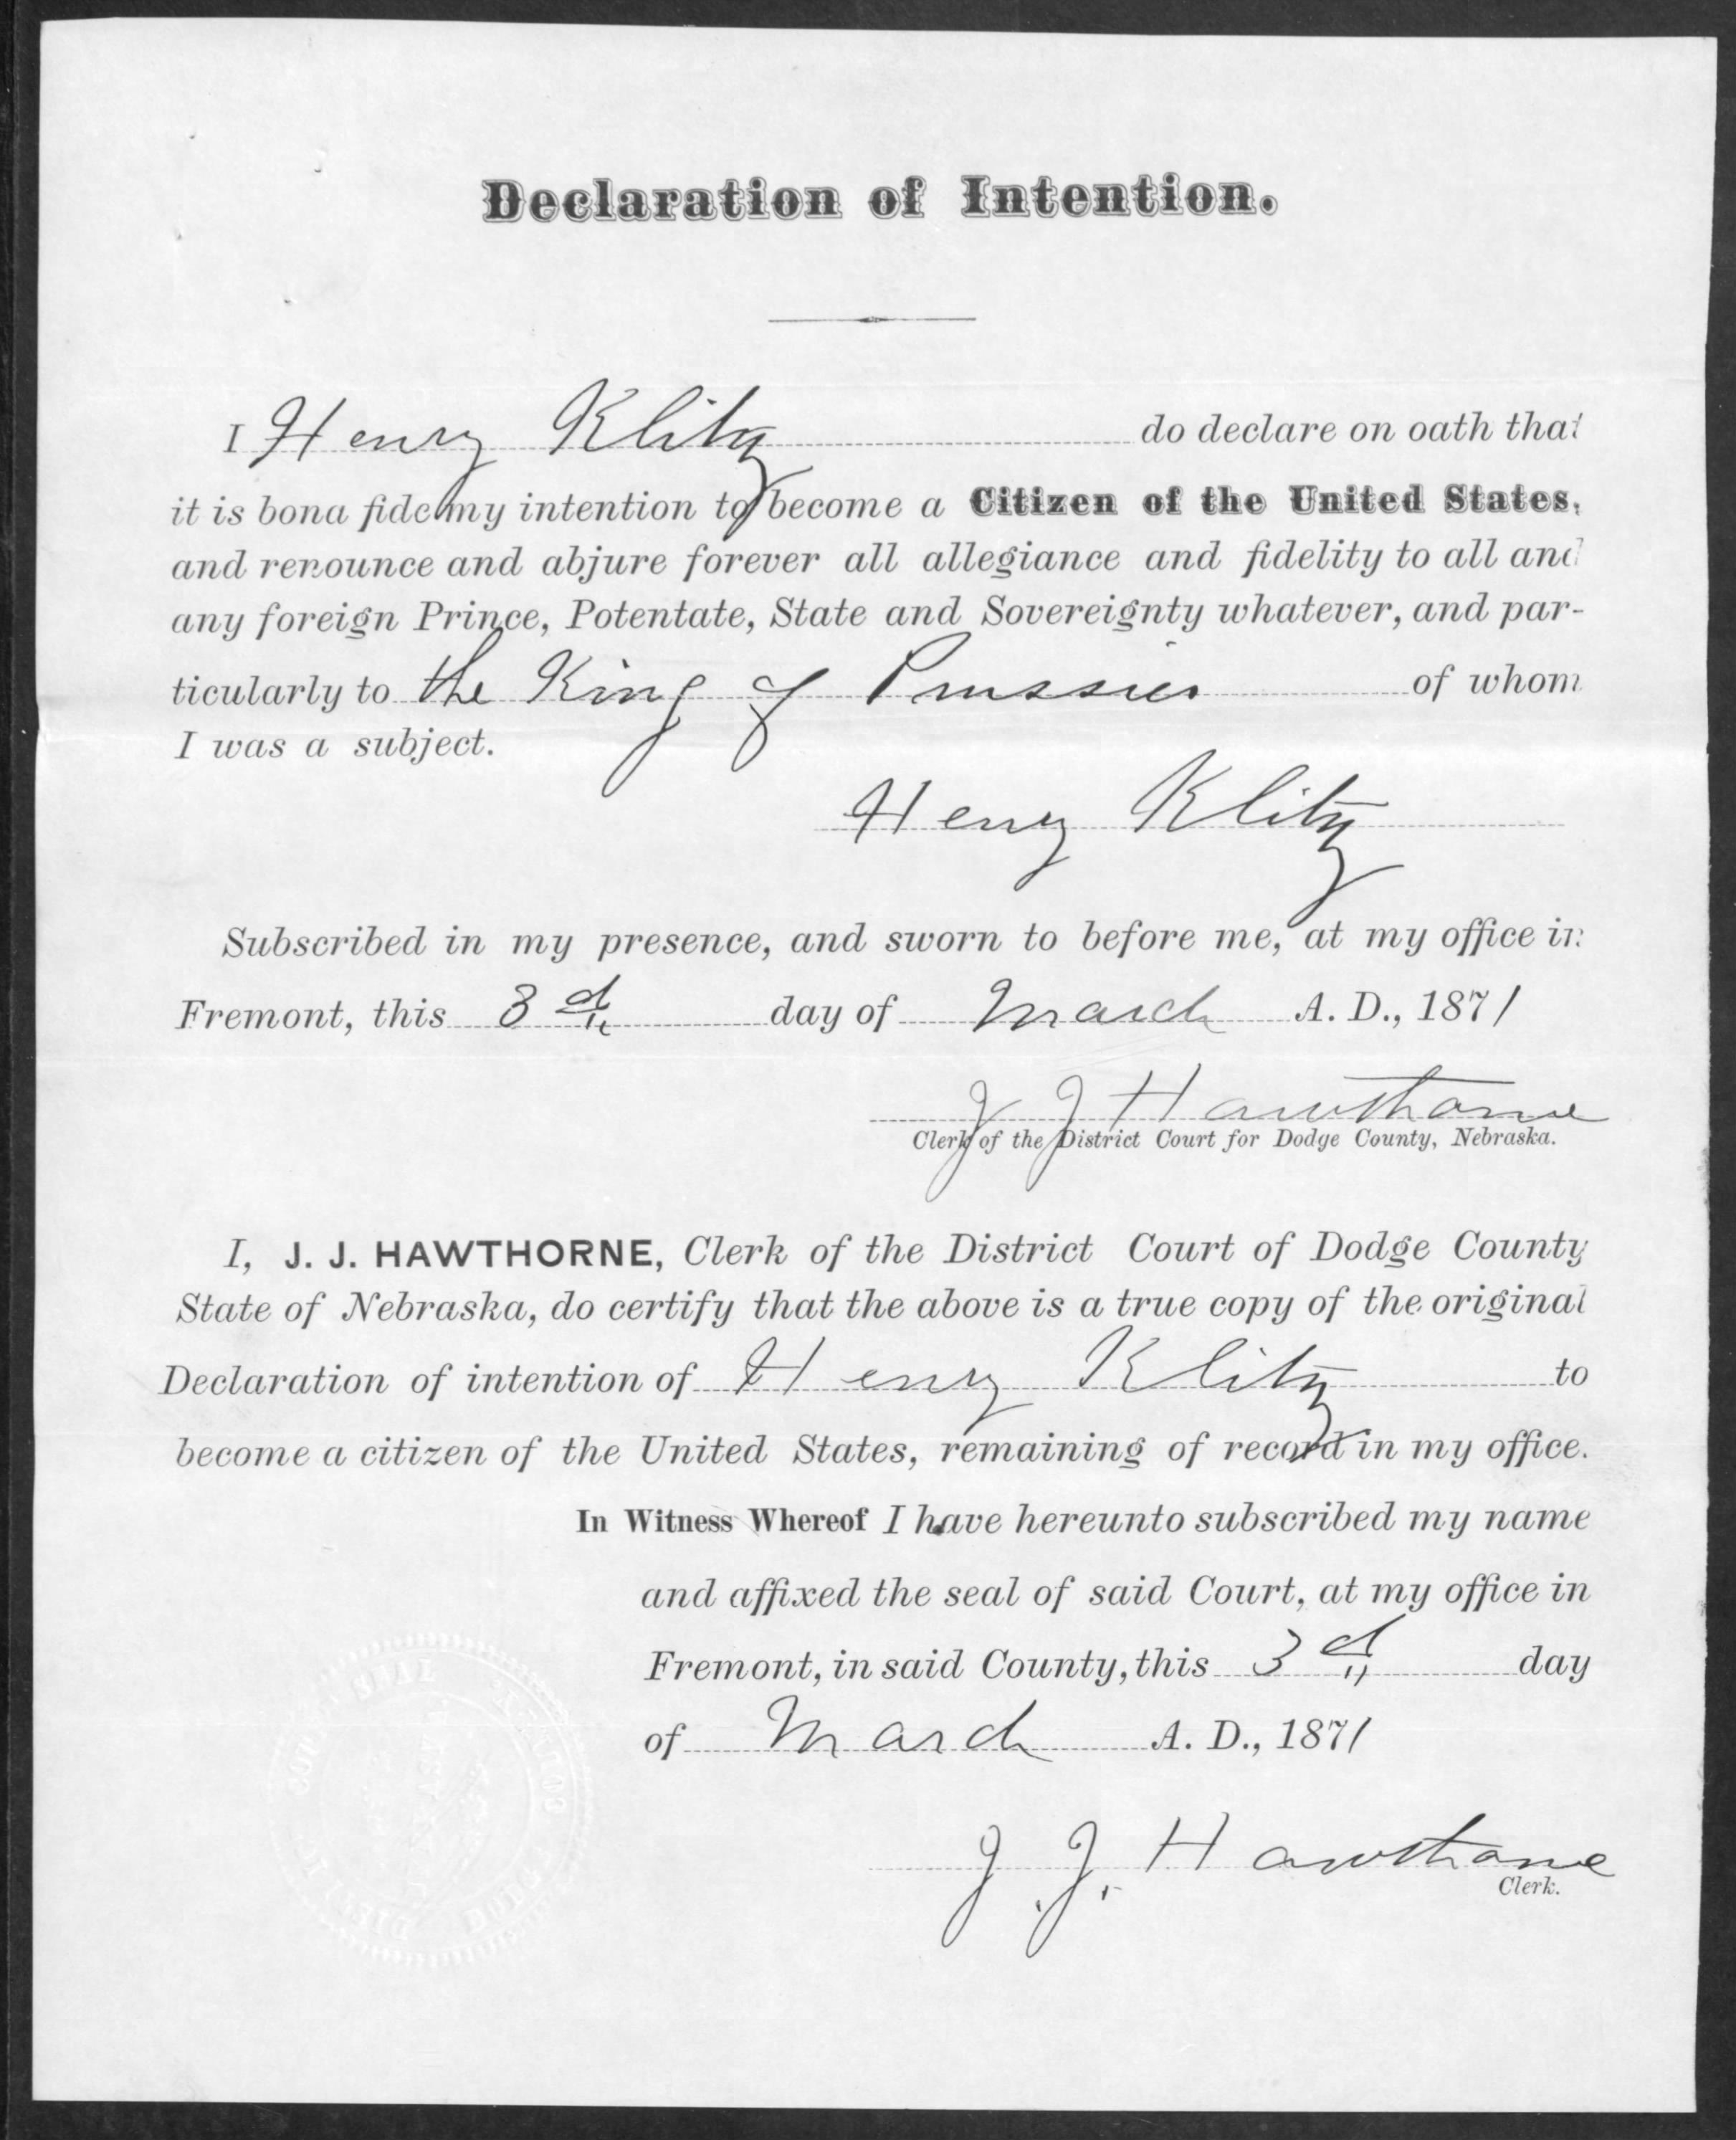 Declaration of Intention.
I Henry Klitz do declare on oath that
it is bona fide my intention to become a Citizen of the United States,
and renounce and abjure forever all allegiance and fidelity to all and
any foreign Prince, Potentate, State and Sovereignty whatever, and par-
ticularly to the King of Prussia of whom
I was a subject.
Henry Klitz
Subscribed in my presence, and sworn to before me, at my office in
Fremont, this 3d day of March A. D., 1871
J J Hawthorne
Clerk of the District Court for Dodge County, Nebraska.
I, J. J. HAWTHORNE, Clerk of the District Court of Dodge County
State of Nebraska, do certify that the above is a true copy of the original
Declaration of intention of Henry Klitz to
become a citizen of the United States, remaining of record in my office.
In Witness Whereof I have hereunto subscribed my name
and affixed the seal of said Court, at my office in
Fremont, in said County, this 3d day
of March A. D., 1871
J. J. Hawthorne
Clerk.